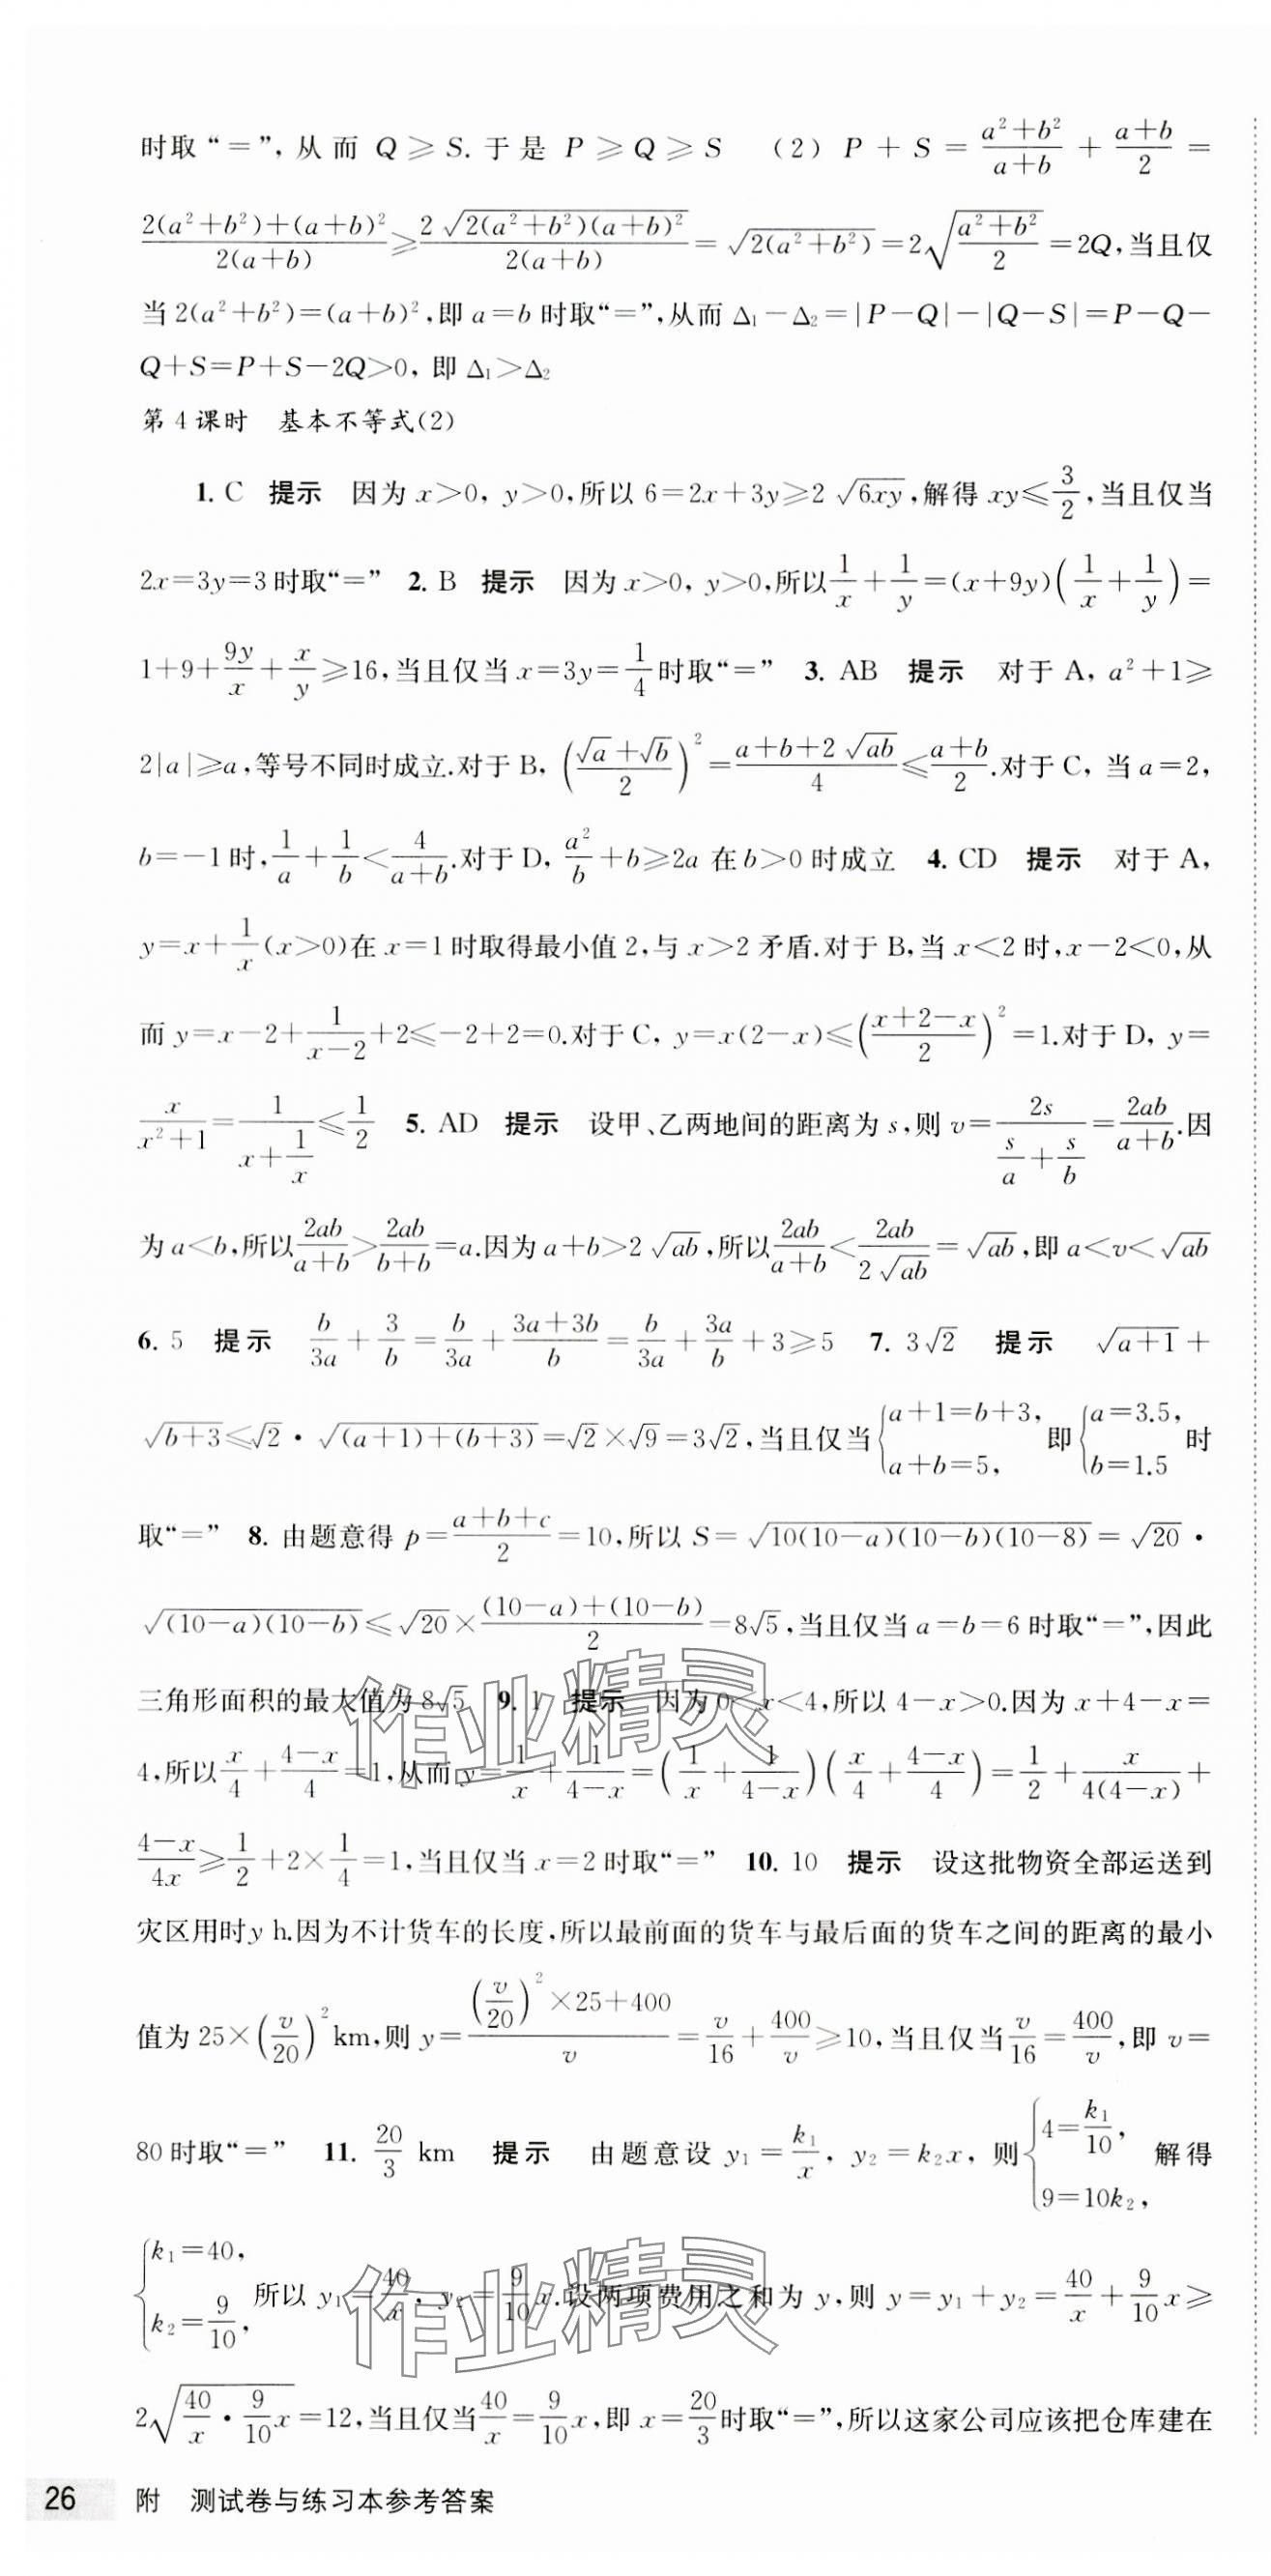 时取“=”，从而 Q≥S. 于是 P≥Q≥S　(2) P+S=\frac{a²+b²}{a+b}+\frac{a+b}{2}=
\frac{2(a²+b²)+(a+b)²}{2(a+b)}≥\frac{2\sqrt{2(a²+b²)(a+b)²}}{2(a+b)}=\sqrt{2(a²+b²)}=2\sqrt{\frac{a²+b²}{2}}=2Q，当且仅
当 2(a²+b²)=(a+b)²，即 a=b 时取“=”，从而 Δ₁-Δ₂=|P-Q|-|Q-S|=P-Q-
Q+S=P+S-2Q>0，即 Δ₁>Δ₂
第 4 课时　基本不等式(2)
1. C　提示　因为 x>0，y>0，所以 6=2x+3y≥2\sqrt{6xy}，解得 xy≤\frac{3}{2}，当且仅当
2x=3y=3 时取“=”　2. B　提示　因为 x>0，y>0，所以\frac{1}{x}+\frac{1}{y}=(x+9y)(\frac{1}{x}+\frac{1}{y})=
1+9+\frac{9y}{x}+\frac{x}{y}≥16，当且仅当 x=3y=\frac{1}{4}时取“=”　3. AB　提示　对于 A，a²+1≥
2|a|≥a，等号不同时成立.对于 B，(\frac{\sqrt{a}+\sqrt{b}}{2})²=\frac{a+b+2\sqrt{ab}}{4}≤\frac{a+b}{2}.对于 C，当 a=2，
b=-1 时，\frac{1}{a}+\frac{1}{b}<\frac{4}{a+b}.对于 D，\frac{a²}{b}+b≥2a 在 b>0 时成立　4. CD　提示　对于 A，
y=x+\frac{1}{x}(x>0)在 x=1 时取得最小值 2，与 x>2 矛盾.对于 B，当 x<2 时，x-2<0，从
而 y=x-2+\frac{1}{x-2}+2≤-2+2=0.对于 C，y=x(2-x)≤(\frac{x+2-x}{2})²=1.对于 D，y=
\frac{x}{x²+1}=\frac{1}{x+\frac{1}{x}}≤\frac{1}{2}　5. AD　提示　设甲、乙两地间的距离为 s，则 v=\frac{2s}{\frac{s}{a}+\frac{s}{b}}=\frac{2ab}{a+b}.因
为 a<b，所以\frac{2ab}{a+b}>\frac{2ab}{b+b}=a.因为 a+b>2\sqrt{ab}，所以\frac{2ab}{a+b}<\frac{2ab}{2\sqrt{ab}}=\sqrt{ab}，即 a<v<\sqrt{ab}
6. 5　提示　\frac{b}{3a}+\frac{3}{b}=\frac{b}{3a}+\frac{3a+3b}{b}=\frac{b}{3a}+\frac{3a}{b}+3≥5　7. 3\sqrt{2}　提示　\sqrt{a+1}+
\sqrt{b+3}≤\sqrt{2}·\sqrt{(a+1)+(b+3)}=\sqrt{2}×\sqrt{9}=3\sqrt{2}，当且仅当{a+1=b+3, a+b=5, 即{a=3.5, b=1.5 时
取“=”　8. 由题意得 p=\frac{a+b+c}{2}=10，所以 S=\sqrt{10(10-a)(10-b)(10-8)}=\sqrt{20}·
\sqrt{(10-a)(10-b)}≤\sqrt{20}×\frac{(10-a)+(10-b)}{2}=8\sqrt{5}，当且仅当 a=b=6 时取“=”，因此
三角形面积的最大值为 8\sqrt{5}　9. 1　提示　因为 0<x<4，所以 4-x>0.因为 x+4-x=
4，所以\frac{x}{4}+\frac{4-x}{4}=1，从而 y=\frac{1}{x}+\frac{1}{4-x}=(\frac{1}{x}+\frac{1}{4-x})(\frac{x}{4}+\frac{4-x}{4})=\frac{1}{2}+\frac{x}{4(4-x)}+
\frac{4-x}{4x}≥\frac{1}{2}+2×\frac{1}{4}=1，当且仅当 x=2 时取“=”　10. 10　提示　设这批物资全部运送到
灾区用时 y h.因为不计货车的长度，所以最前面的货车与最后面的货车之间的距离的最小
值为 25×(\frac{v}{20})² km，则 y=\frac{(\frac{v}{20})²×25+400}{v}=\frac{v}{16}+\frac{400}{v}≥10，当且仅当\frac{v}{16}=\frac{400}{v}，即 v=
80 时取“=”　11. \frac{20}{3} km　提示　由题意设 y₁=\frac{k₁}{x}，y₂=k₂x，则{4=\frac{k₁}{10}, 9=10k₂, 解得
{k₁=40, k₂=\frac{9}{10}, 所以 y₁=\frac{40}{x}，y₂=\frac{9}{10}x.设两项费用之和为 y，则 y=y₁+y₂=\frac{40}{x}+\frac{9}{10}x≥
2\sqrt{\frac{40}{x}·\frac{9}{10}x}=12，当且仅当\frac{40}{x}=\frac{9}{10}x，即 x=\frac{20}{3}时取“=”，所以这家公司应该把仓库建在
26　附　测试卷与练习本参考答案
作业精灵
作业精灵